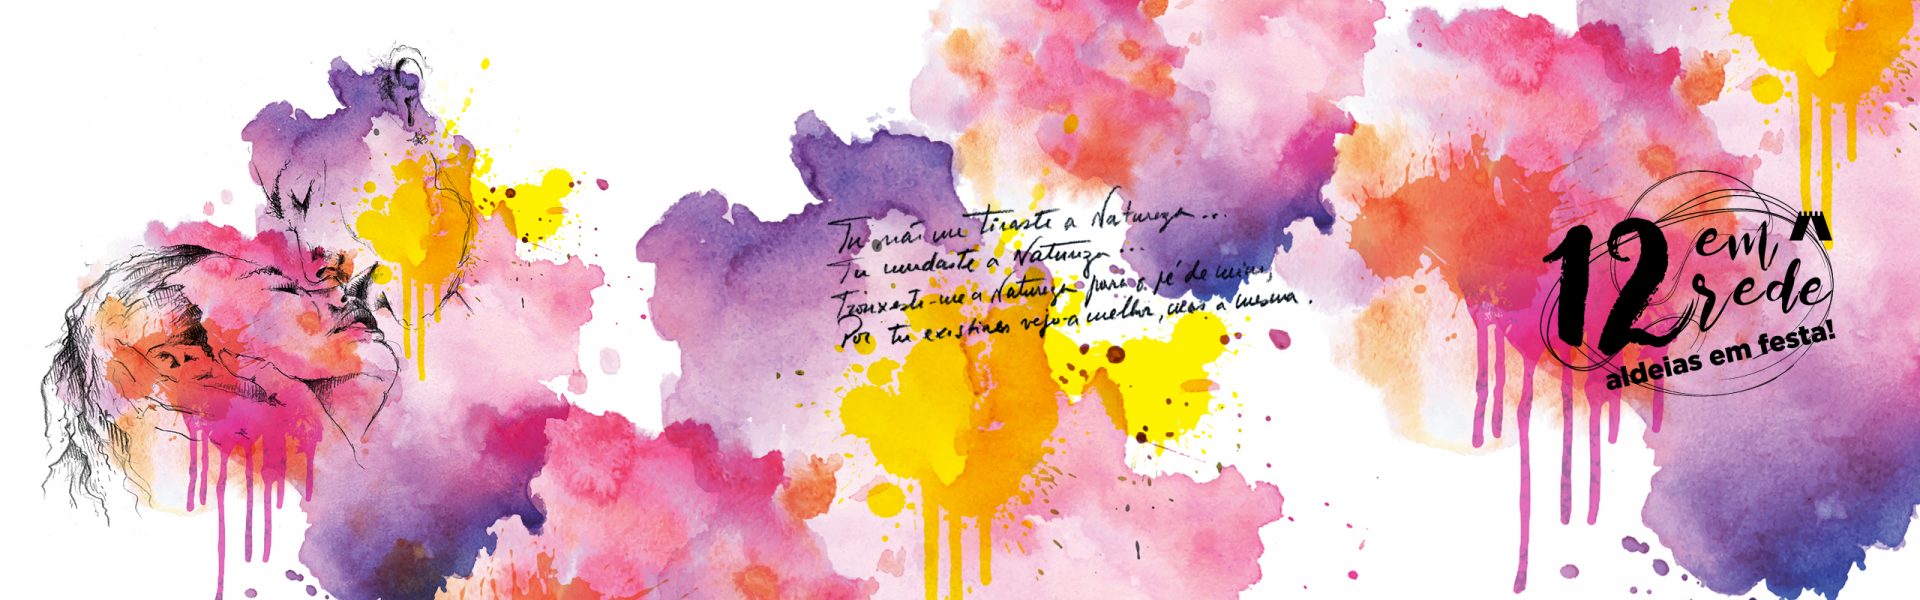 Tu não me tiraste a Natureza...
Tu mudaste a Natureza...
Trouxeste-me a Natureza para o pé de mim,
Por tu existires vejo-a melhor, mas a mesma.
12 em rede
aldeias em festa!